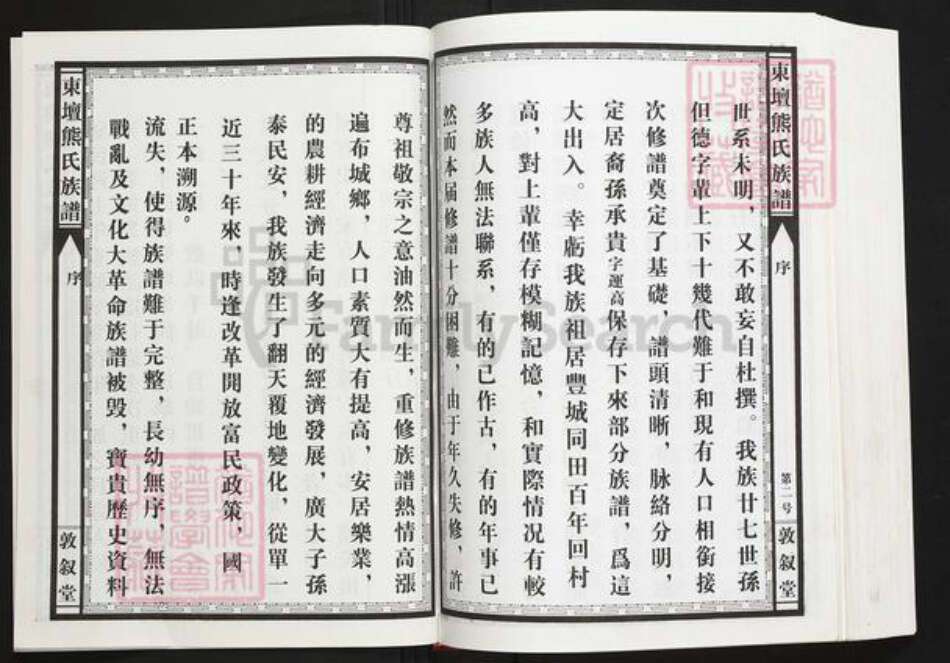 東壇熊氏族譜
序
第二号
敦叙堂
世系未明，又不敢妄自杜撰。我族廿七世孫
但德字輩上下十幾代難于和現有人口相銜接
次修譜奠定了基礎，譜頭清晰，脉絡分明，
定居裔孫承貴字運高保存下來部分族譜，爲這
大出入。幸虧我族祖居豐城同田百年回村
高，對上輩僅存模糊記憶，和實際情况有較
多族人無法聯系，有的已作古，有的年事已
然而本届修譜十分困難，由于年久失修，許
尊祖敬宗之意油然而生，重修族譜熱情高漲
遍布城鄉，人口素質大有提高，安居樂業，
的農耕經濟走向多元的經濟發展，廣大子孫
泰民安，我族發生了翻天覆地變化，從單一
近三十年來，時逢改革開放富民政策，國
正本溯源。
流失，使得族譜難于完整，長幼無序，無法
戰亂及文化大革命族譜被毁，寶貴歷史資料
東壇熊氏族譜
序
敦叙堂
FamilySearch